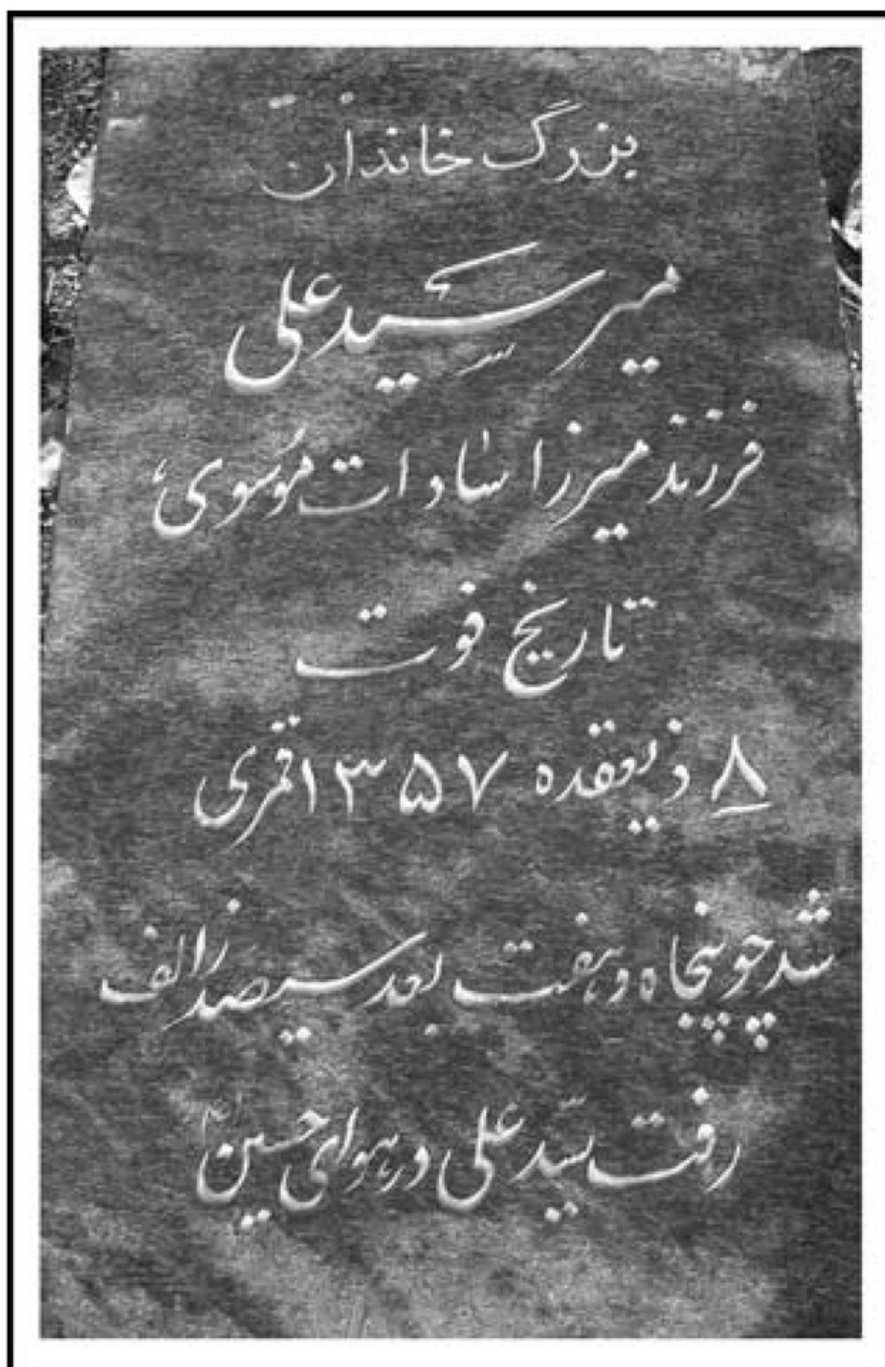 بزرگ خاندان
میر سید علی
فرزند میرزا سادات موسوی
تاریخ فوت
۸ ذیعقده ۱۳۵۷ قمری
شد چو پنجاه و هفت بعد سیصد ز الف
رفت سیّد علی در هوای حسین